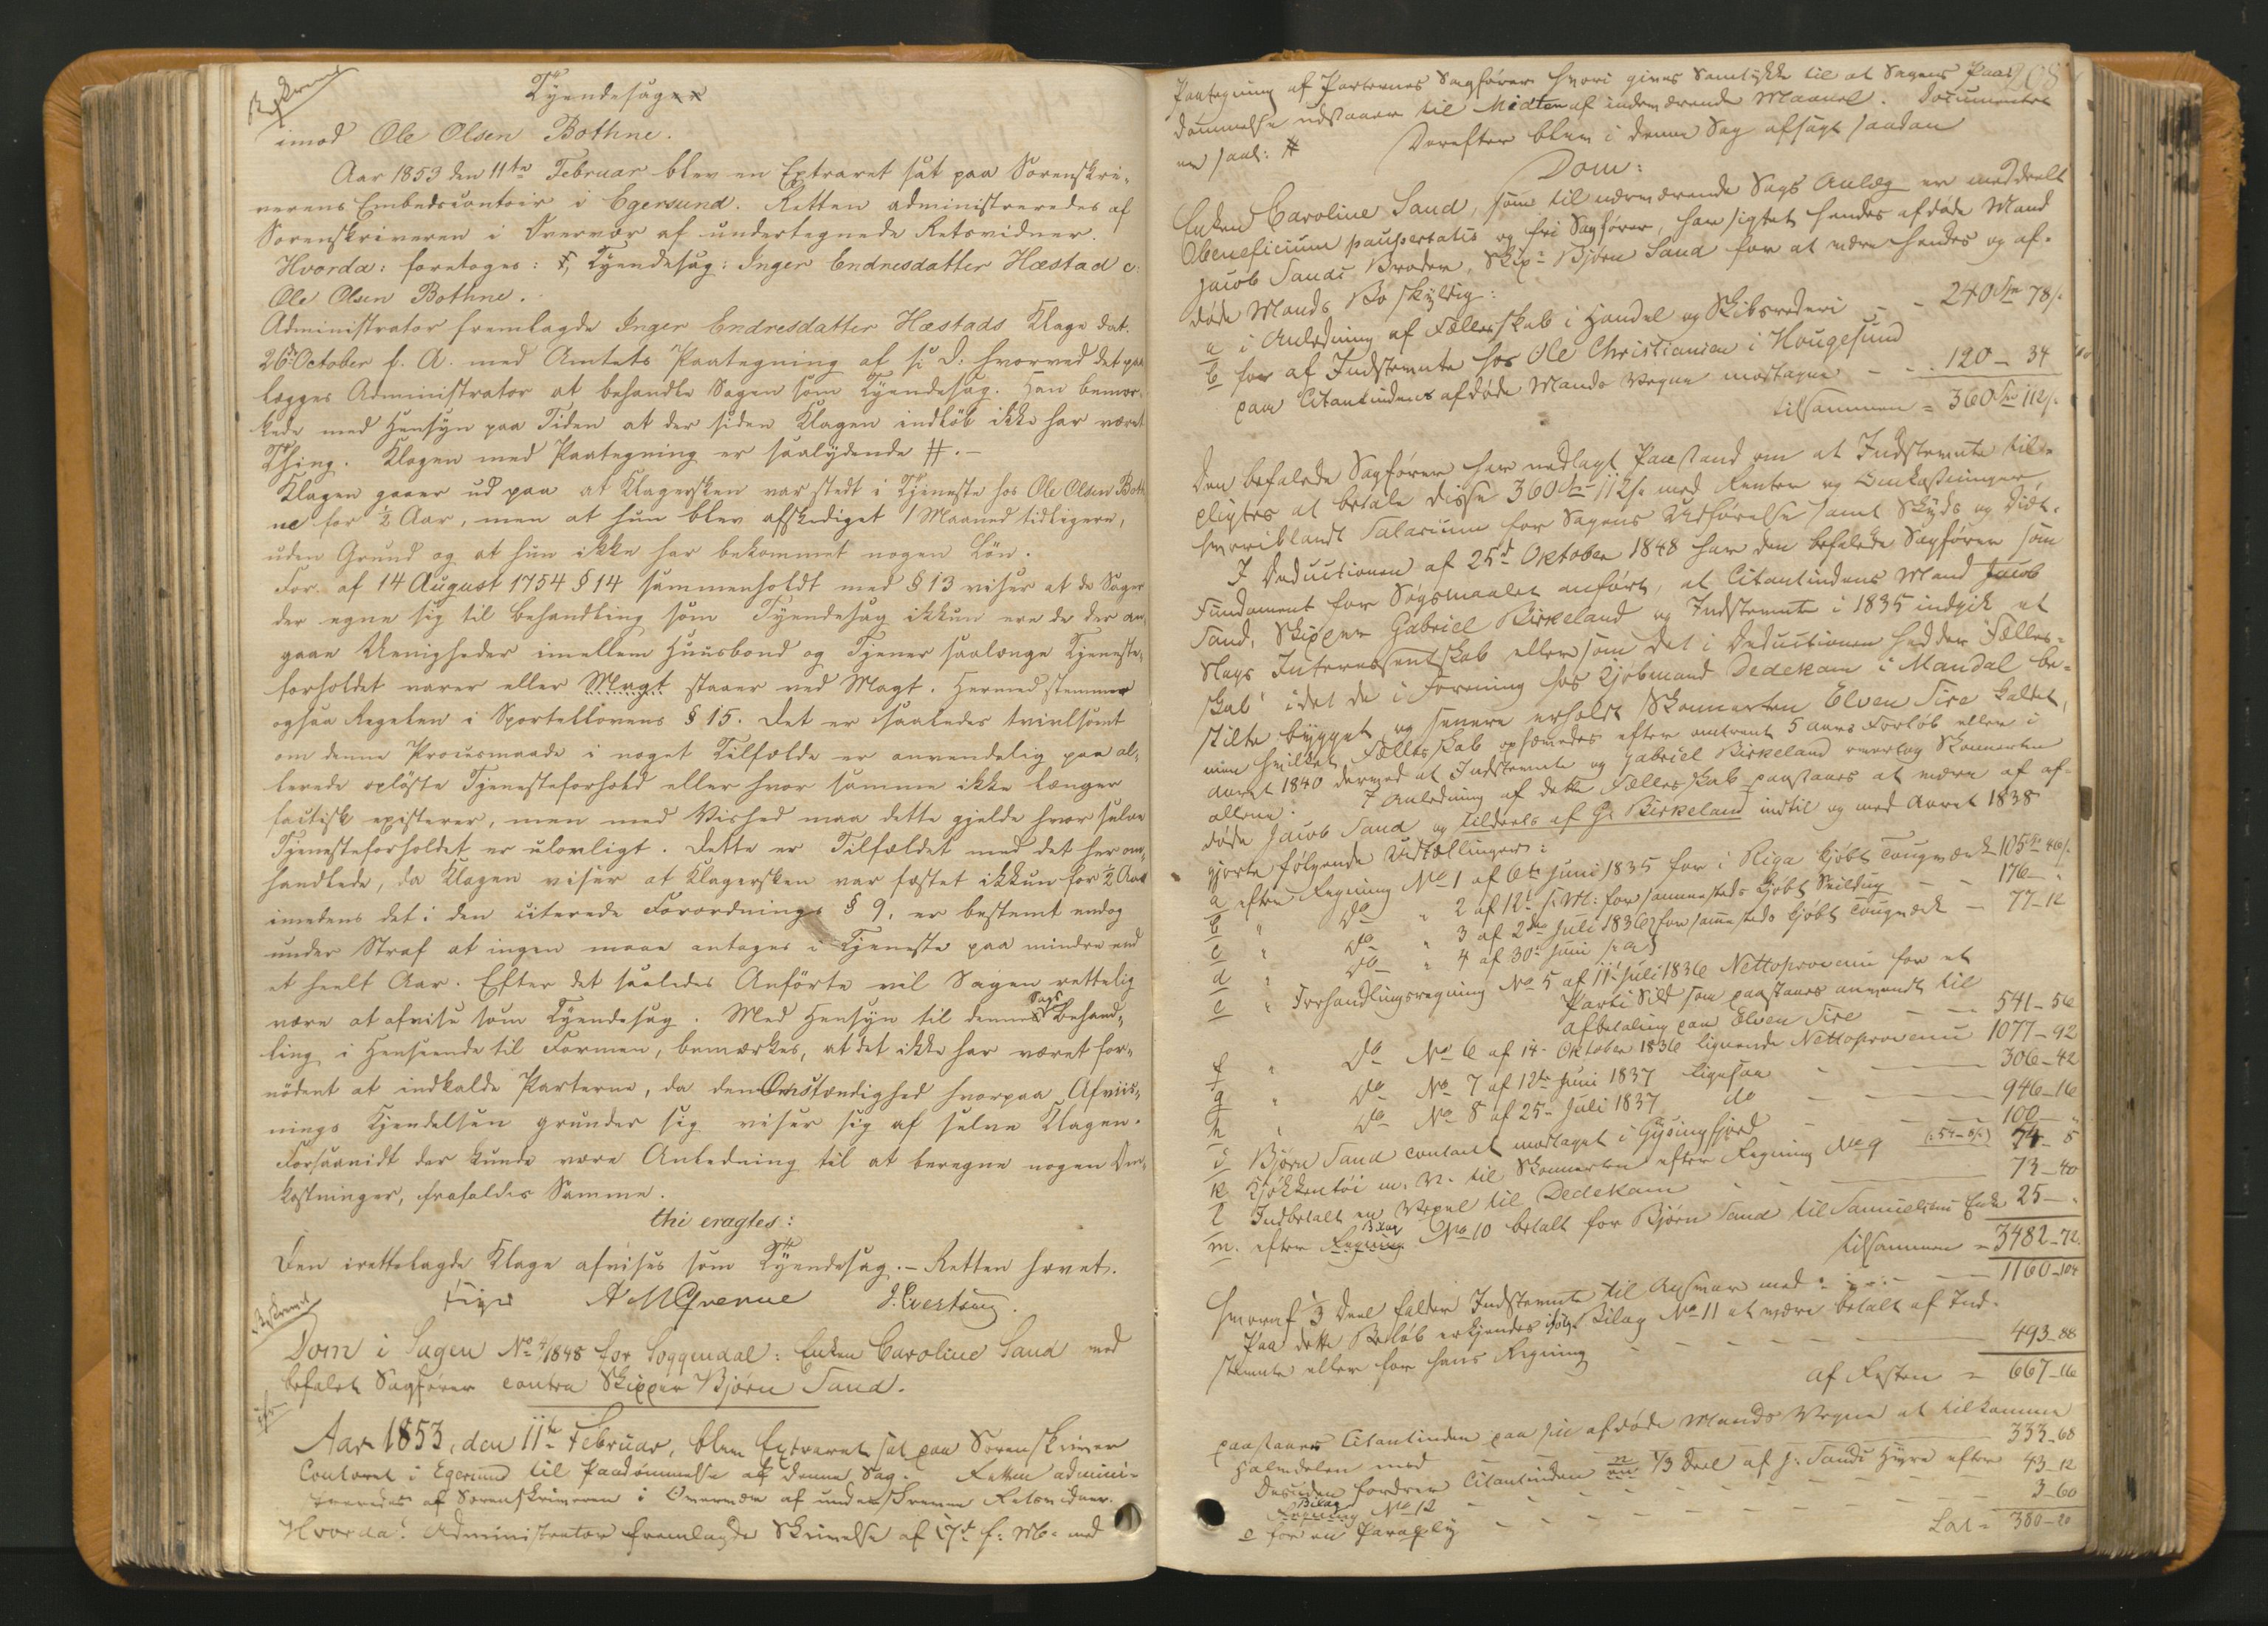 Beskreven
Tyendesag
imod Ole Olsen Bothne.
Aar 1853 den 11te Februar blev en Extraret sat paa Sorenskri-
verens Embedscontoir i Egersund. Retten administreredes af
Sorenskriveren i Overvær af undertegnede Retsvidner.
Hvorda: foretoges: Tyendesag: Inger Endresdatter Hæstad c:
Ole Olsen Bothne.
Administrator fremlagde Inger Endresdatter Hæstads Klage dat.
26de October f. A. med Amtets Paategning af s: D: hvorved det paa
lægges Administrator at behandle Sagen som Tyendesag. Han bemær-
kede med Hensyn paa Tiden at der siden Klagen indløb ikke har været
Thing. Klagen med Paategning er saalydende #.-
Klagen gaaer ud paa at Klagersken var stedt i Tjeneste hos Ole Olsen Both
ne for ½ Aar, men at hun blev afskediget 1 Maaned tidligere,
uden Grund og at hun ikke har bekommet nogen Løn.
For. af 14 August 1754 § 14 sammenholdt med § 13 viser at de Sager
der egne sig til Behandling som Tyendesag ikkun ere de der an-
gaae Uenigheder imellem Huusbond og Tjener saalænge Tjeneste-
forholdet varer eller Magt staaer ved Magt. Hermed stemmer
ogsaa Regelen i Sportellovens § 15. Det er saaledes tvivlsomt
om denne Procesmaade i noget Tilfælde er anvendelig paa al-
lerede opløste Tjenesteforhold eller hvor samme ikke længer
factisk existerer, men med Vished maa dette gjelde hvor selve
Tjenesteforholdet er ulovligt. Dette er Tilfældet med det her om-
handlede, da Klagen viser at Klagersken var fæstet ikkun for ½ Aar
imedens det i den citerede Forordnings § 9, er bestemt endog
under Straf at ingen maae antages i Tjeneste paa mindre end
et heelt Aar. Efter det saaledes Anførte vil Sagen rettelig
være at afvise som Tyendesag. Med Hensyn til dennes Sags Behand-
ling i Henseende til Formen, bemærkes, at det ikke har været for-
nødent at indkalde Parterne, da den Omstændighed hvorpaa Afviis-
nings Kjendelsen grunder sig viser sig af selve Klagen.
Forsaavidt der kunde være Anledning til at beregne nogen Om-
kostninger, frafaldes Samme.
thi eragtes:
Den irettelagde Klage afvises som Tyendesag. - Retten hævet.
J. Evertsen.
Beskreven
Dom i Sagen No 4/1848 for Soggendal: Enken Caroline Sand med
befalet Sagfører contra Skipper Bjørn Sand.
Aar 1853, den 11te Februar, blev Extraret sat paa Sorenskriver
Contoret i Egersund til Paadømmelse af denne Sag. Retten admini-
streredes af Sorenskriveren i Overvær af underskrevne Retsvidner.
Hvorda: Administrator fremlagde Skrivelse af 17de f: Md: med
208
Paategning af Parternes Sagfører hvori gives Samtykke til at Sagens Paa-
dømmelse udstaaer til Midten af indeværende Maaned. Documentet
er saal: # Derefter blev i denne Sag afsagt saadan
Dom:
Enken Caroline Sand, som til nærværende Sags Anlæg er meddeelt
Beneficium paupertatis og fri Sagfører, har sigtet hendes afdøde Mand
Jacob Sands Broder, Skip: Bjørn Sand for at være hendes og af-
døde Mands Bo skyldig:
a i Anledning af Fællesskab i Handel og Skibsrederi - - 240 Spd 78/-
b for af Indstevnte hos Ole Christiansen i Hougesund
paa Citantindens afdøde Mands Vegne modtagne - - 120 - 34
tilsammen = 360 Spd 112/-
Den befalede Sagfører har nedlagt Paastand om at Indstevnte til-
pligtes at betale disse 360 Spd 112/- med Renter og Omkostninger,
hvoriblandt Salarium for Sagens Udførelse samt Skyds og Diæt.
I Deductionen af 25de Oktober 1848 har den befalede Sagfører som
Fundament for Søgsmaalet anført, at Citantindens Mand Jacob
Sand, Skipper Gabriel Birkeland og Indstevnte i 1835 indgik et
Slags Interessentskab eller som det i Deductionen hedder "Fælles-
skab" idet de i Forening hos Kjøbmand Dedekam i Mandal be-
stilte bygget og senere erholdt Skonnerten Elven Sire kaldet,
men hvilket Fællesskab ophævedes efter omtrent 5 Aars Forløb eller i
Aaret 1840 dermed at Indstevnte og Gabriel Birkeland overtog Skonnerten
allene. I Anledning af dette Fællesskab paastaaes at være af af-
døde Jacob Sand og tildeels af G. Birkeland indtil og med Aaret 1838
gjorte følgende Udtællinger:
a efter Regning No 1 af 6te Juni 1835 for i Riga kjøbt Tougværk 105 Spd 46/-
b " Do " 2 af 12te s: M: for sammesteds kjøbt Seildug - - 176 - "
c " Do " 3 af 2den Juli 1836 } for sammesteds kjøbt Tougværk - 77-12
d " Do " 4 af 30te Juni s: A: }
e " Forhandlingsregning No 5 af 11te Juli 1836 Nettoprovenu for et
Parti Sild som paastaaes anvendt til
Afbetaling paa Elven Sire - - 541-56
f " Do No 6 af 14de Oktober 1836 lignende Nettoprovenu 1077-92
g " Do No 7 af 12te Juni 1837 ligesaa - - 306-42
h " Do No 8 af 25de Juli 1837 do - - 946-16
i Bjørn Sand contant modtaget i Gysingfjord - - 100 - "
k Kjøkkentøi m. V. til Skonnerten efter Regning No 9 (:54-5/:) 74-5
l Indbetalt en Vexel til Dedekam - - 73-40
m. efter Regning Bilag No 10 betalt for Bjørn Sand til Samuelsens Enke 25 - "
tilsammen = 3482-72
Hvoraf 1/3 Deel falder Indstevnte til Ansvar med - - 1160-104
Paa dette Beløb erkjendes ifølge Bilag No 11 at være betalt af Ind-
stevnte eller for hans Regning - - 493-88
Af Resten = 667-16
paastaaes Citantinden paa sin afdøde Mands Vegne at tilkomme
Halvdelen med - - 333-68
Desuden fordrer Citantinden en 1/3 Deel af J. Sands Hyre efter
Regning Bilag No 12 - - 43-12
e for en Paraply - - 3-60
Lat. = 380-20